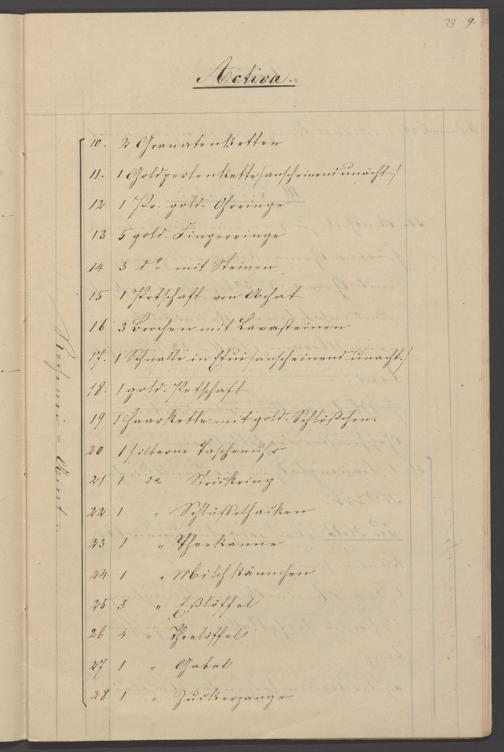 28 9.
Activa.
10. 2 Granatenketten
11. 1 Goldperlenkette /:anscheinend unächt:/
12 1 Pr. gold. Ohrringe
13 5 gold. Fingerringe
14 3 do mit Steinen
15 1 Petschaft von Achat
16 3 Brochen mit Lavasteinen
17. 1 Schnalle in Etui /:anscheinend unächt:/
18. 1 gold. Petschaft
19 1 Haarkette mit gold. Schlößchen.
20 1 silberne Taschenuhr
21 1 do Strickring
22 1 " Schlüsselhaken
23 1 " Theekanne
24 1 " Milchkännchen
25 3 " Eßlöffel
26 4 " Theelöffel
27 1 " Gabel
28 1 " Zuckerzange